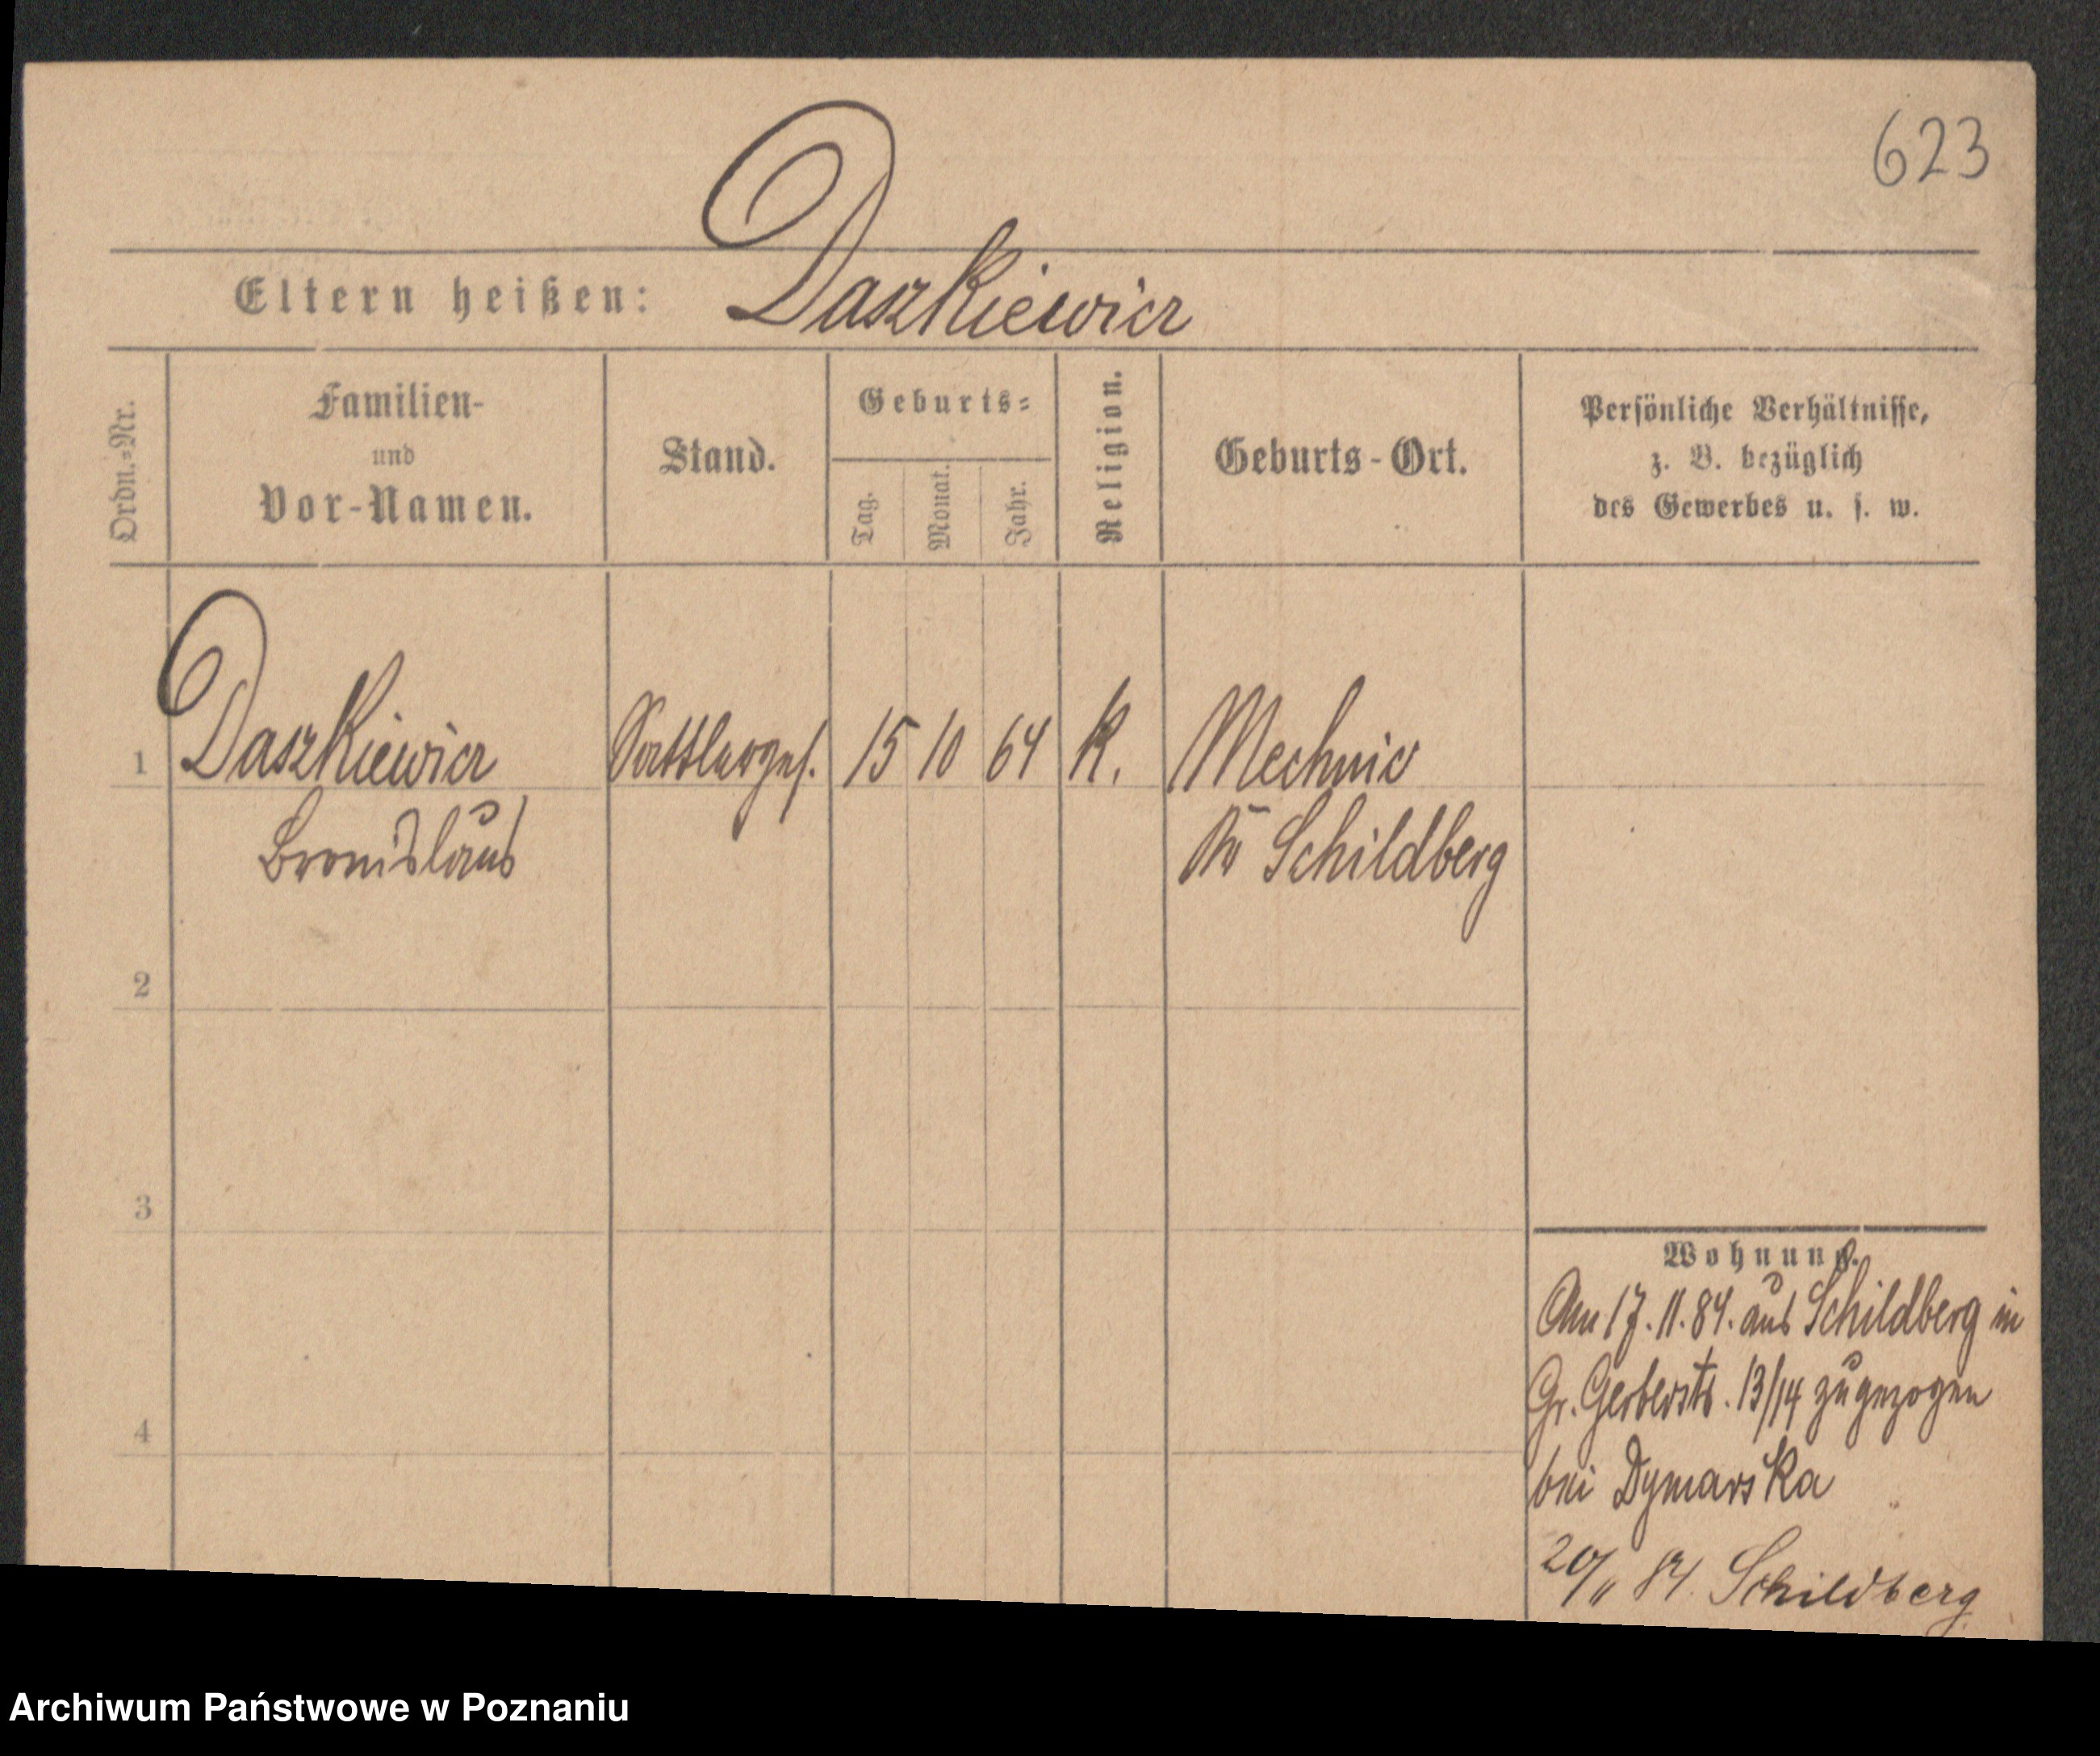 623
Eltern heißen: Daszkiewicz
Ordn.-Nr.
Familien-
und
Vor-Namen.
Stand.
Geburts-
Tag.
Monat.
Jahr.
Religion.
Geburts-Ort.
Persönliche Verhältnisse,
z. B. bezüglich
des Gewerbes u. s. w.
1 Daszkiewicz Sattlerges. 15 10 64 K. Mechnic
Bronislaus Kr Schildberg
2
3
4
Wohnung.
Am 17.11.84. aus Schildberg in
Gr. Gerberstr. 13/14 zugezogen
bei Dymarska
20/11 84. Schildberg
Archiwum Państwowe w Poznaniu